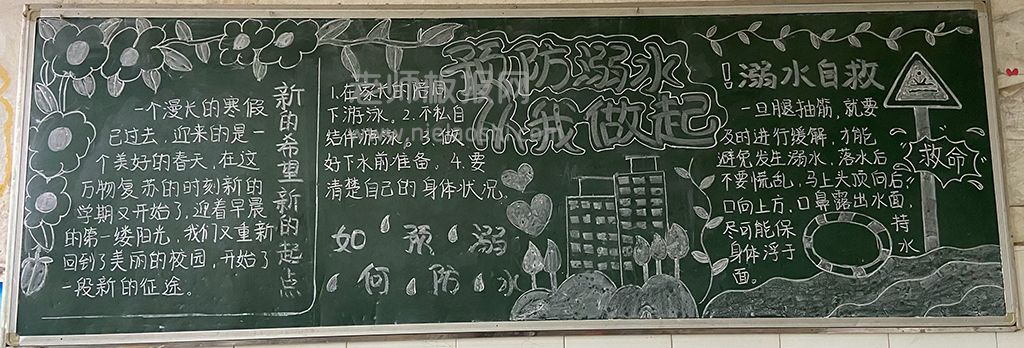 一个漫长的寒假
已过去，迎来的是一
个美好的春天，在这
万物复苏的时刻新的
学期又开始了，迎着早晨
的第一缕阳光，我们又重新
回到了美丽的校园，开始了
一段新的征途。
新的希重新的起点
预防溺水
从我做起
1.在家长的陪同
下游泳。2.不私自
结伴游泳。3.做
好下水前准备。4.要
清楚自己的身体状况。
如预溺
何防水
！溺水自救
一旦腿抽筋，就要
及时进行缓解，才能
避免发生溺水，落水后
不要慌乱，马上头顶向后，
口向上方，口鼻露出水面，
尽可能保持
身体浮于水
面。
救命